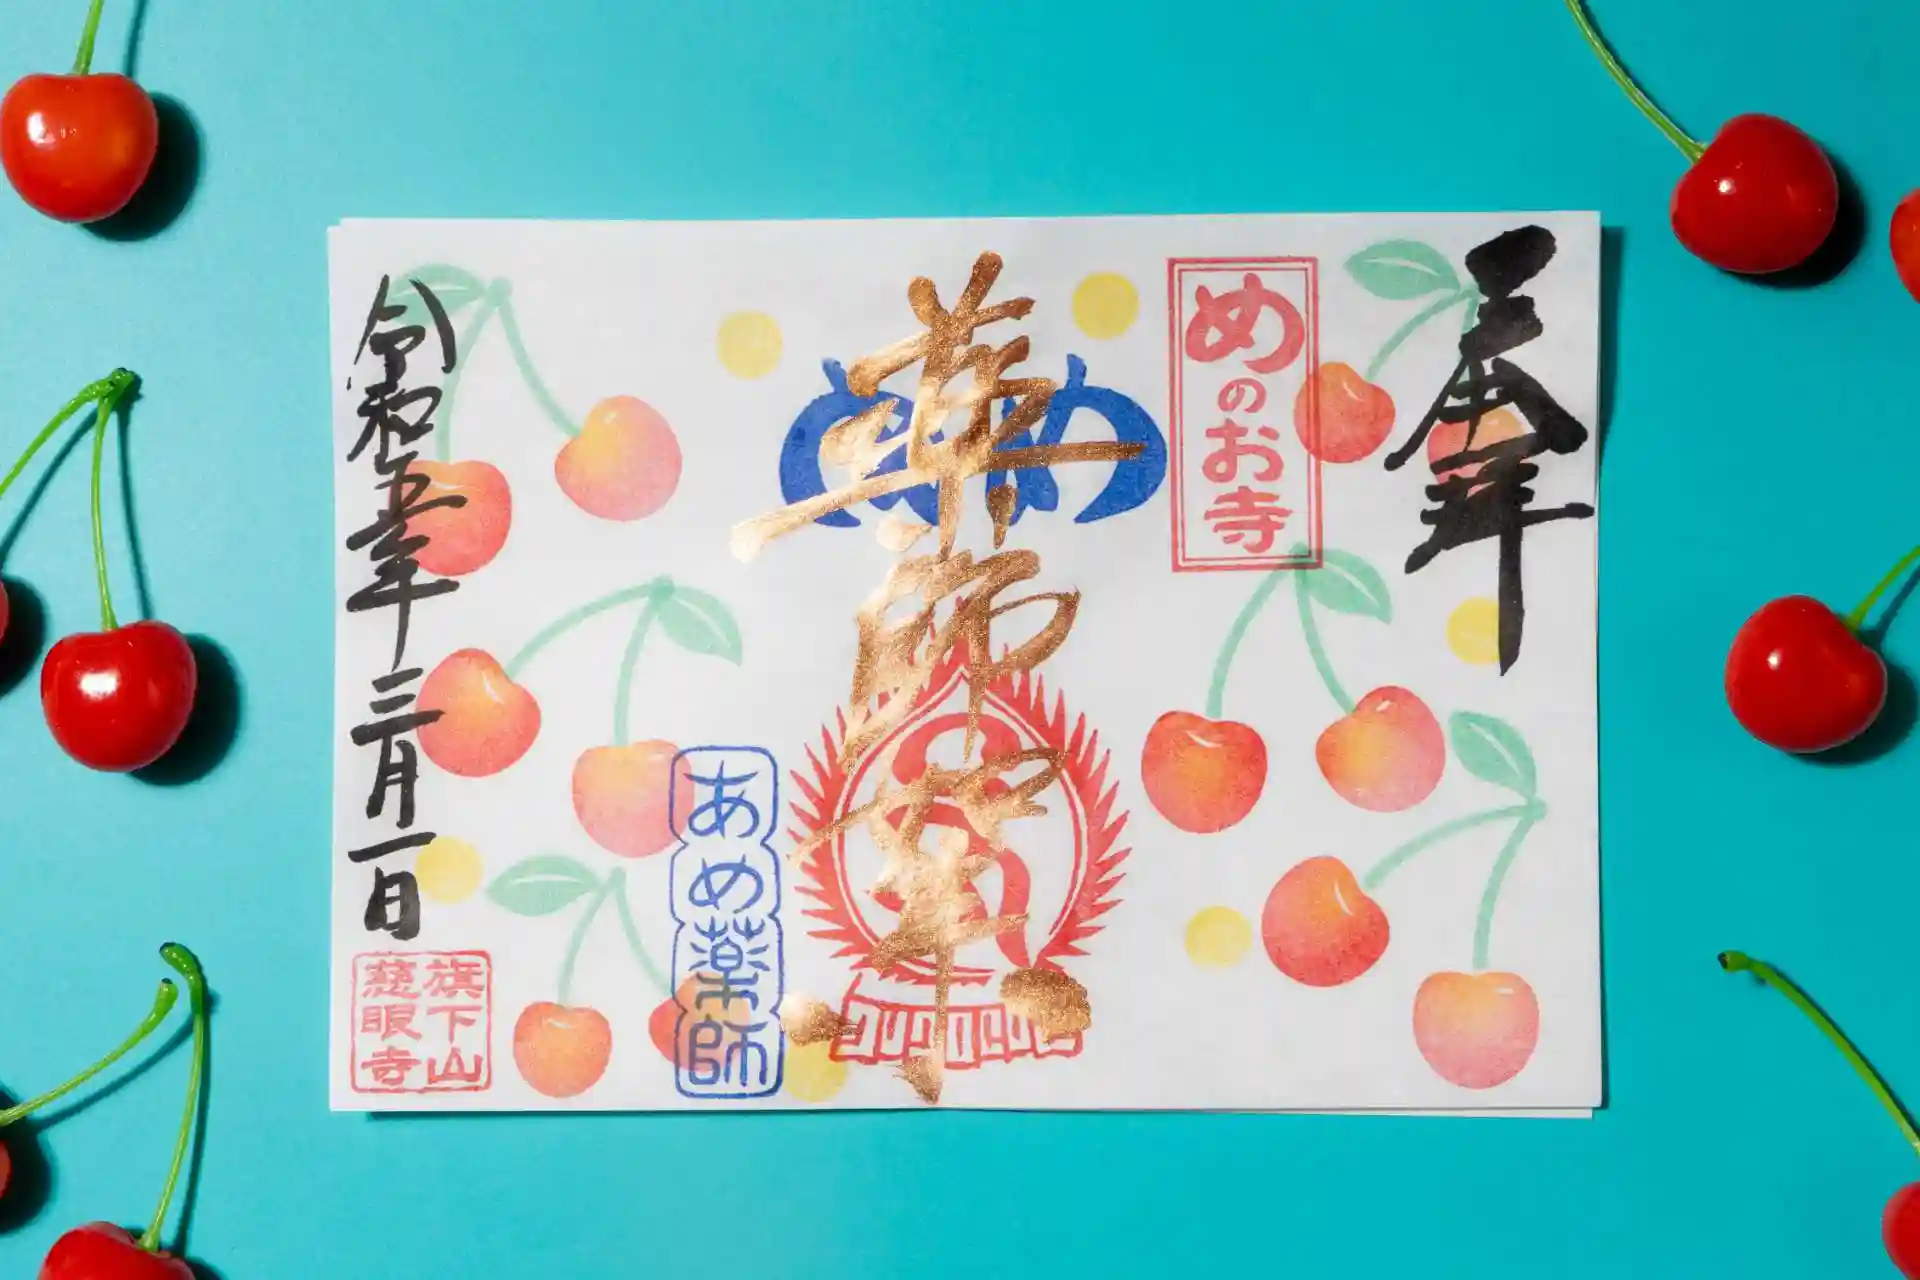 奉拝
めのお寺
め
薬師如来
あめ薬師
令和五年三月一日
旗下山
慈眼寺